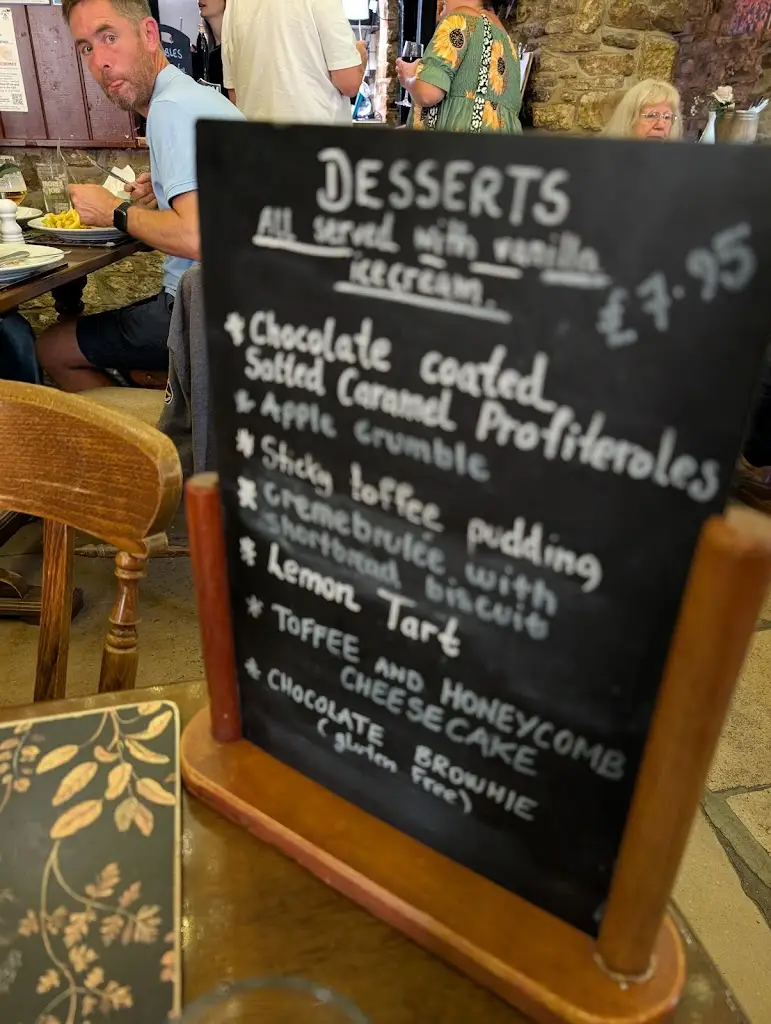 DESSERTS
All served with vanilla
icecream.
£7.95
* Chocolate coated
Salted Caramel Profiteroles
* Apple crumble
* Sticky toffee pudding
* cremebrulee with
shortbread biscuit
* Lemon Tart
* TOFFEE AND HONEYCOMB
CHEESECAKE
* CHOCOLATE BROWNIE
(gluten free)